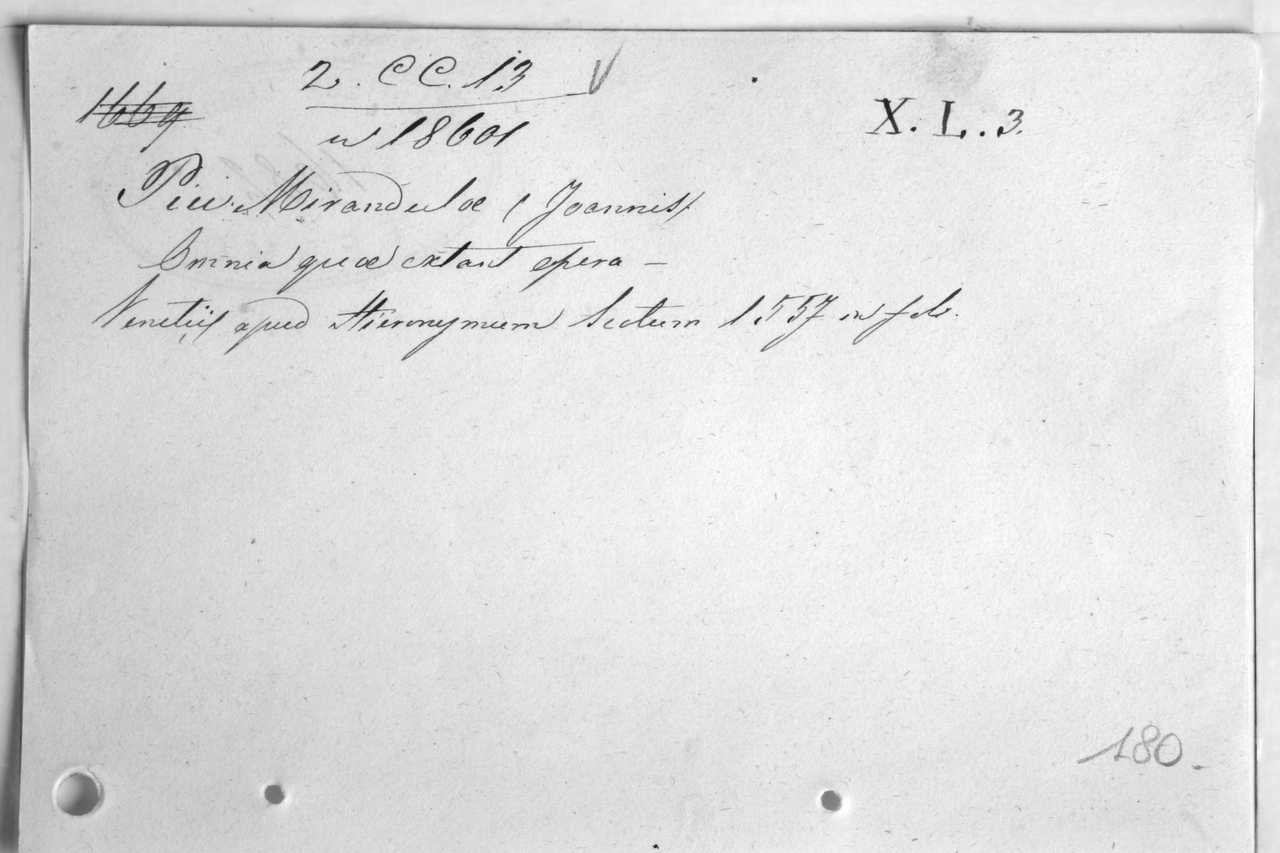 2. CC. 13 V
1669
n 18601
X. L. 3.
Pici Mirandulae (Joannis)
Omnia quae extant opera —
Venetiis apud Hieronymum Scotum 1557 in fol.
180.